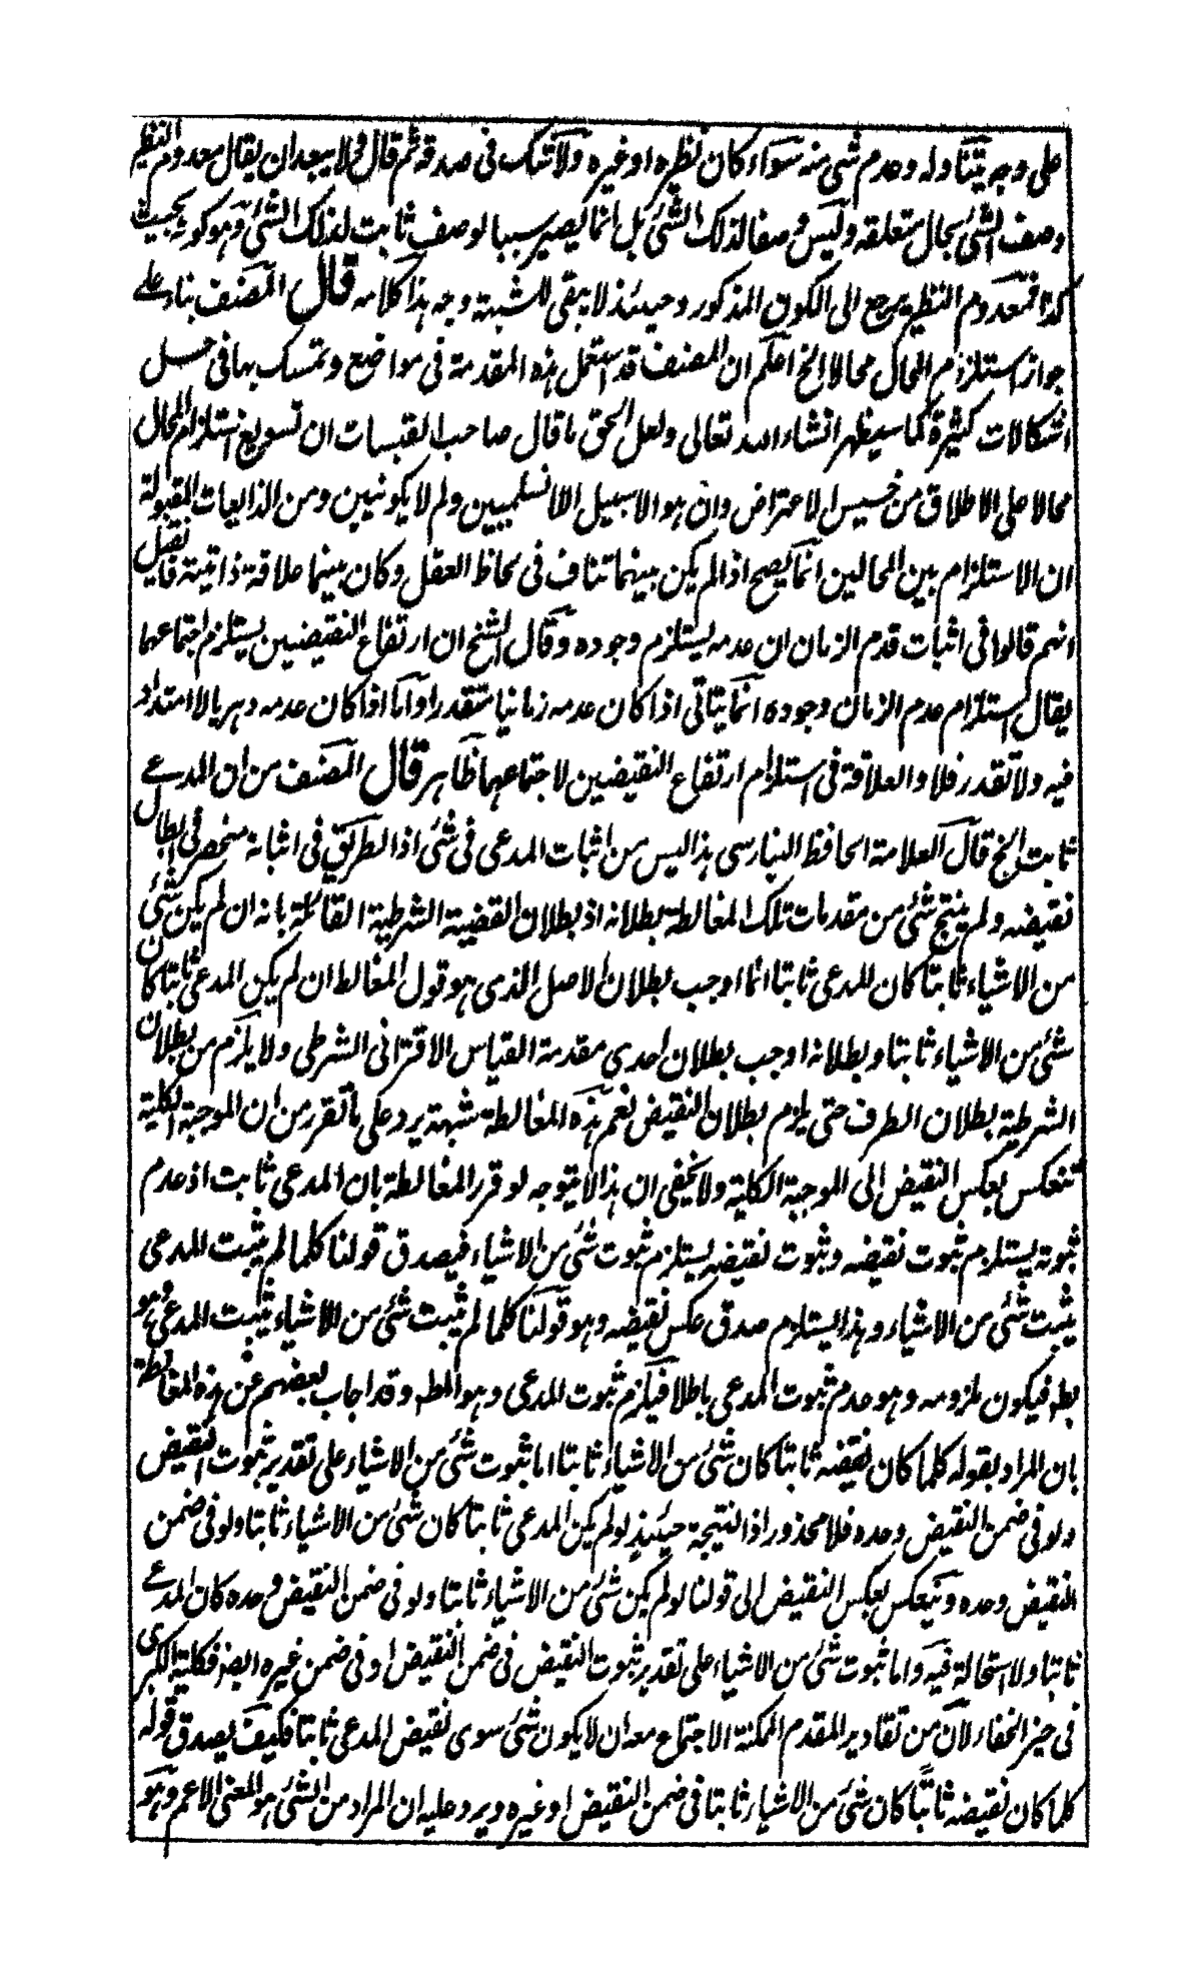 على وجه يتناوله وعدم شئ منه سواء كان نظره او غيره ولا شك فى صدقه ثم قال ولا يبعد ان يقال معدوم النظير
وصف الشئ بحال متعلقه وليس وصفا لذلك الشئ بل انما يصير سببا لوصف ثابت لذلك الشئ وهو كونه بحيث
كذا فمعدوم النظير يرجع الى الكون المذكور وحينئذ لا يبقى للشبهة وجه هذا كلامه قال المصنف بناء على
جواز استلزام المحال محالا الخ اعلم ان المصنف قد استعمل هذه المقدمة فى مواضع وتمسك بها فى حل
اشكالات كثيرة كما سيظهر انشاء الله تعالى ولعل الحق ما قال صاحب القبسات ان تسويغ استلزام المحال
محالا على الاطلاق من خسيس الاعتراض وان هو الا سبيل الا ولم لا يكونيين ومن الذايعات المقبولة
ان الاستلزام بين المحالين انما يصح اذا لم يكن بينهما تناف فى لحاظ العقل وكان بينهما علاقة ذاتية فان قيل
انهم قالوا فى اثبات قدم الزمان ان عدمه يستلزم وجوده وقال الشيخ ان ارتفاع النقيضين يستلزم اجتماعهما
يقال استلزام عدم الزمان وجوده انما يتاتى اذا كان عدمه زمانيا متقدرا واما اذا كان عدمه دهريا لا امتداد
فيه ولا تقدر فلا والعلاقة فى استلزام ارتفاع النقيضين لاجتماعهما ظاهر قال المصنف من ان المدعى
ثابت الخ قال العلامة الحافظ البنارسى هذا ليس من اثبات المدعى فى شئ اذ الطريق فى اثباته منحصر فى ابطال
نقيضه ولم ينتج شئ من مقدمات تلك المغالطة بطلانه اذ بطلان القضية الشرطية القائلة بانه ان لم يكن شئ
من الاشياء ثابتا كان المدعى ثابتا انما اوجب بطلان الاصل الذى هو قول المغالط ان لم يكن المدعى ثابتا كان
شئ من الاشياء ثابتا وبطلانه اوجب بطلان احدى مقدمة القياس الاقترانى الشرطى ولا يلزم من بطلان
الشرطية بطلان الطرف حتى يلزم بطلان النقيض نعم هذه المغالطة شبهة يرد على ما تقرر من ان الموجبة الكلية
تنعكس بعكس النقيض الى الموجبة الكلية ولا يخفى ان هذا لا يتوجه لو قرر المغالطة بان المدعى ثابت اذ عدم
ثبوته يستلزم ثبوت نقيضه وثبوت نقيضه يستلزم ثبوت شئ من الاشياء فيصدق قولنا كلما لم يثبت المدعى
يثبت شئ من الاشياء وهذا يستلزم صدق عكس نقيضه وهو قولنا كلما لم يثبت شئ من الاشياء يثبت المدعى وهو
بطه فيكون ملزومه وهو عدم ثبوت المدعى باطلا فيلزم ثبوت المدعى وهو المطه وقد اجاب بعضهم عن هذه المغالطة
بان المراد بقوله كلما كان نقيضه ثابتا كان شئ من الاشياء ثابتا اما ثبوت شئ من الاشياء على تقدير ثبوت النقيض
ولو فى ضمن النقيض وحده فلا محذور اذ النتيجة حينئذ لو لم يكن المدعى ثابتا كان شئ من الاشياء ثابتا ولو فى ضمن
النقيض وحده وينعكس بعكس النقيض الى قولنا لو لم يكن شئ من الاشياء ثابتا ولو فى ضمن النقيض وحده كان المدعى
ثابتا ولا استحالة فيه واما ثبوت شئ من الاشياء على تقدير ثبوت النقيض فى ضمن النقيض او فى ضمن غيره ايضا فكلية الكبرى
فى حيز الخفاء لان من تقادير المقدم الممكنة الاجتماع معه ان لا يكون شئ سوى نقيض المدعى ثابتا فكيف يصدق قوله
كلما كان نقيضه ثابتا كان شئ من الاشياء ثابتا فى ضمن النقيض او غيره ويرد عليه ان المراد من الشئ هو المعنى الاعم وهو